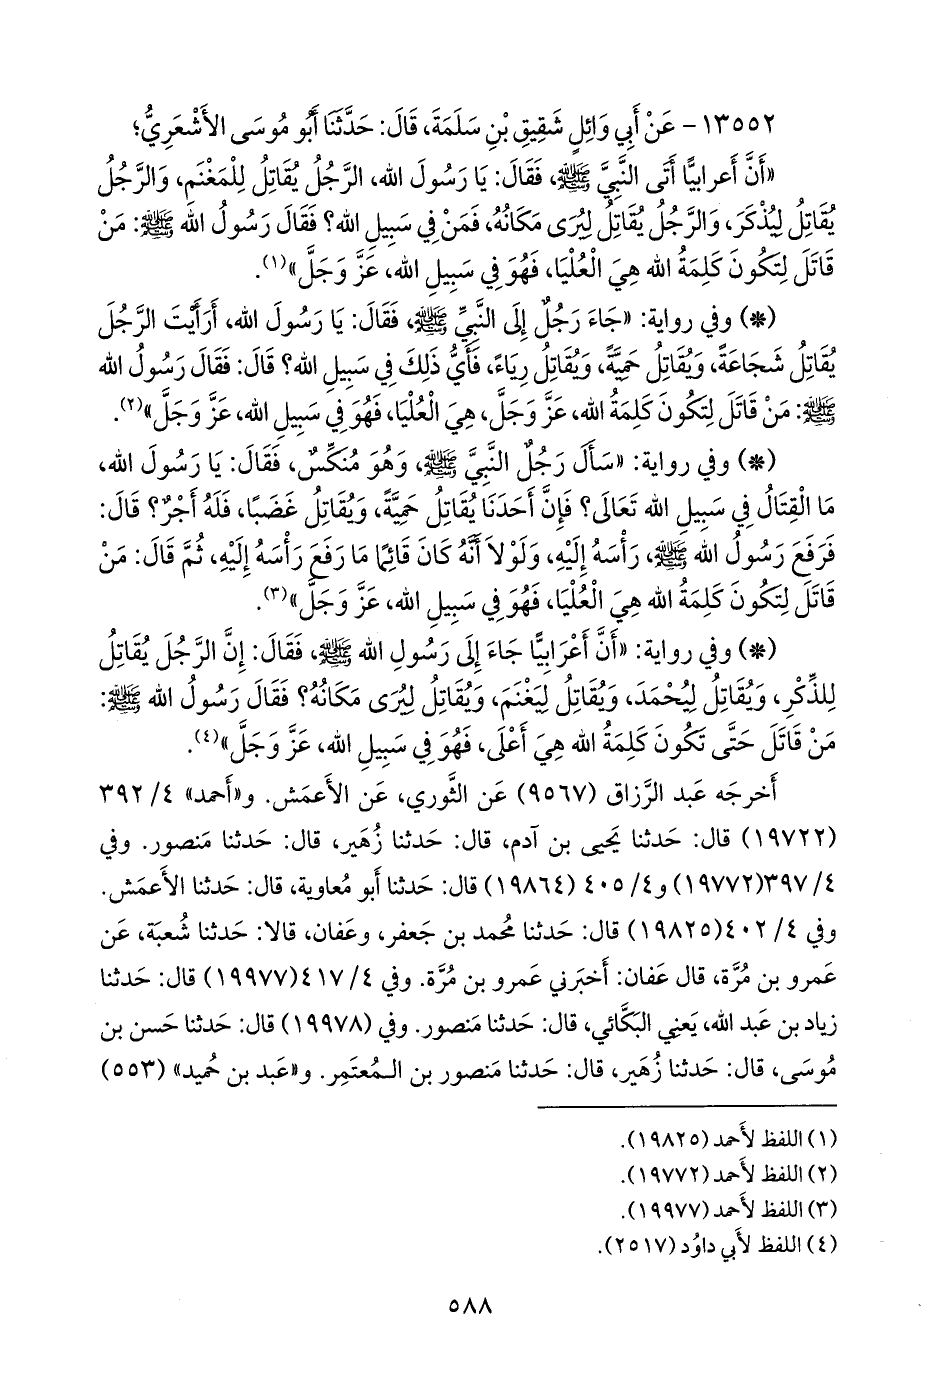 ١٣٥٥٢- عَنْ أَبِي وَائِلٍ شَقِيقِ بْنِ سَلَمَةَ، قَالَ: حَدَّثَنَا أَبُو مُوسَى الأَشْعَرِيُّ؛
«أَنَّ أَعرابيًّا أَتَى النَّبِيَّ ﷺ، فَقَالَ: يَا رَسُولَ الله، الرَّجُلُ يُقَاتِلُ لِلْمَغْنَمِ، وَالرَّجُلُ
يُقَاتِلُ لِيُذْكَرَ، وَالرَّجُلُ يُقَاتِلُ لِيُرَى مَكَانُهُ، فَمَنْ فِي سَبِيلِ الله؟ فَقَالَ رَسُولُ الله ﷺ: مَنْ
قَاتَلَ لِتَكُونَ كَلِمَةُ الله هِيَ الْعُلْيَا، فَهُوَ فِي سَبِيلِ الله، عَزَّ وَجَلَّ»(١).
(*) وفي رواية: «جَاءَ رَجُلٌ إِلَى النَّبِيِّ ﷺ، فَقَالَ: يَا رَسُولَ الله، أَرَأَيْتَ الرَّجُلَ
يُقَاتِلُ شَجَاعَةً، وَيُقَاتِلُ حَمِيَّةً، وَيُقَاتِلُ رِيَاءً، فَأَيُّ ذَلِكَ فِي سَبِيلِ الله؟ قَالَ: فَقَالَ رَسُولُ الله
ﷺ: مَنْ قَاتَلَ لِتَكُونَ كَلِمَةُ الله، عَزَّ وَجَلَّ، هِيَ الْعُلْيَا، فَهُوَ فِي سَبِيلِ الله، عَزَّ وَجَلَّ»(٢).
(*) وفي رواية: «سَأَلَ رَجُلٌ النَّبِيَّ ﷺ، وَهُوَ مُنَكِّسٌ، فَقَالَ: يَا رَسُولَ الله،
مَا الْقِتَالُ فِي سَبِيلِ الله تَعَالَى؟ فَإِنَّ أَحَدَنَا يُقَاتِلُ حَمِيَّةً، وَيُقَاتِلُ غَضَبًا، فَلَهُ أَجْرٌ؟ قَالَ:
فَرَفَعَ رَسُولُ الله ﷺ، رَأْسَهُ إِلَيْهِ، وَلَوْلاَ أَنَّهُ كَانَ قَائِمًا مَا رَفَعَ رَأْسَهُ إِلَيْهِ، ثُمَّ قَالَ: مَنْ
قَاتَلَ لِتَكُونَ كَلِمَةُ الله هِيَ الْعُلْيَا، فَهُوَ فِي سَبِيلِ الله، عَزَّ وَجَلَّ»(٣).
(*) وفي رواية: «أَنَّ أَعْرَابِيًّا جَاءَ إِلَى رَسُولِ الله ﷺ، فَقَالَ: إِنَّ الرَّجُلَ يُقَاتِلُ
لِلذِّكْرِ، وَيُقَاتِلُ لِيُحْمَدَ، وَيُقَاتِلُ لِيَغْنَمَ، وَيُقَاتِلُ لِيُرَى مَكَانُهُ؟ فَقَالَ رَسُولُ الله ﷺ:
مَنْ قَاتَلَ حَتَّى تَكُونَ كَلِمَةُ الله هِيَ أَعْلَى، فَهُوَ فِي سَبِيلِ الله، عَزَّ وَجَلَّ»(٤).
أَخرجَه عَبد الرَّزاق (٩٥٦٧) عَن الثَّوري، عَن الأَعمَش. و«أَحمد» ٤/ ٣٩٢
(١٩٧٢٢) قال: حَدثنا يَحيى بن آدم، قال: حَدثنا زُهَير، قال: حَدثنا مَنصور. وفي
٤/ ٣٩٧(١٩٧٧٢) و٤/ ٤٠٥ (١٩٨٦٤) قال: حَدثنا أَبو مُعاوية، قال: حَدثنا الأَعمَش.
وفي ٤/ ٤٠٢(١٩٨٢٥) قال: حَدثنا مُحمد بن جَعفر، وعَفان، قالا: حَدثنا شُعبَة، عَن
عَمرو بن مُرَّة، قال عَفان: أَخبَرني عَمرو بن مُرَّة. وفي ٤/ ٤١٧(١٩٩٧٧) قال: حَدثنا
زياد بن عَبد الله، يَعنِي البَكَّائي، قال: حَدثنا مَنصور. وفي (١٩٩٧٨) قال: حَدثنا حَسن بن
مُوسَى، قال: حَدثنا زُهَير، قال: حَدثنا مَنصور بن المُعتَمِر. و«عَبد بن حُميد» (٥٥٣)
(١) اللفظ لأَحمد (١٩٨٢٥).
(٢) اللفظ لأَحمد (١٩٧٧٢).
(٣) اللفظ لأَحمد (١٩٩٧٧).
(٤) اللفظ لأَبي داوُد (٢٥١٧).
٥٨٨